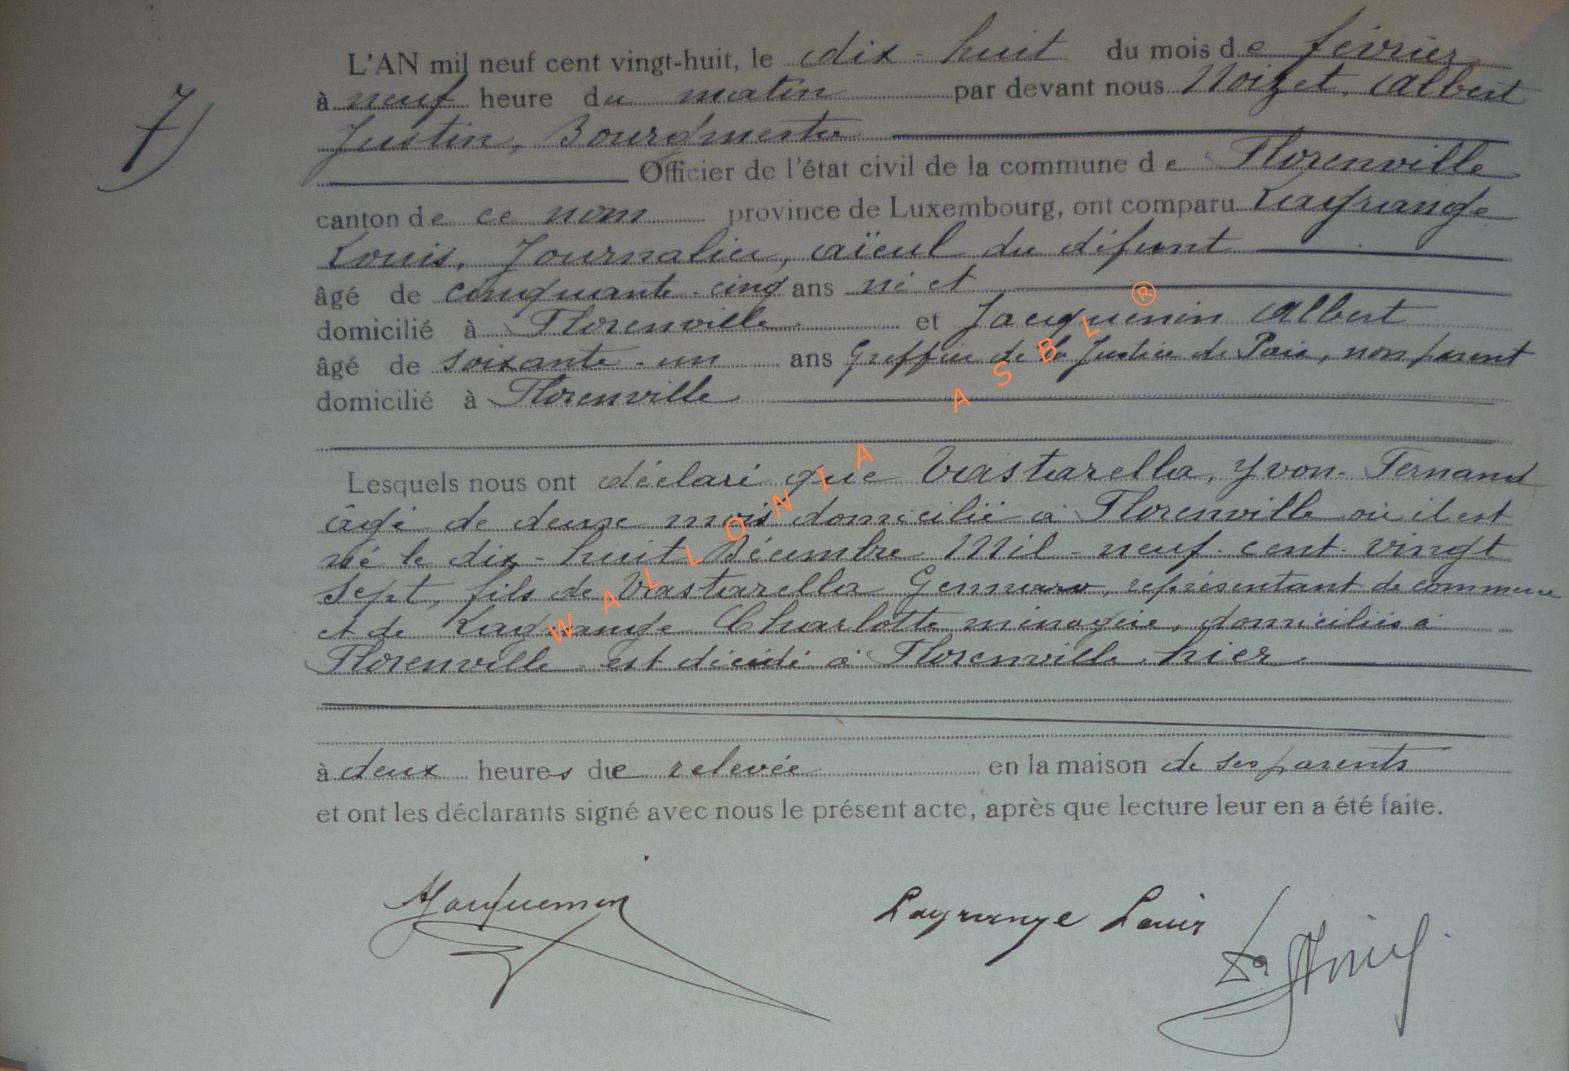 7)
L'AN mil neuf cent vingt-huit, le dix-huit du mois de février
à neuf heure du matin par devant nous Noizet, Albert
Justin, Bourgmestre
Officier de l'état civil de la commune de Florenville
canton de ce nom province de Luxembourg, ont comparu Lagrange
Louis, Journalier, aïeul du défunt
âgé de cinquante-cinq ans né et
domicilié à Florenville et Jacquemin Albert
âgé de soixante-un ans Greffier de la Justice de Paix, non parent
domicilié à Florenville
Lesquels nous ont déclaré que Vastarella, Yvon-Fernand
âgé de deux mois domicilié à Florenville où il est
né le dix-huit Décembre Mil-neuf-cent-vingt
sept, fils de Vastarella Gennaro, représentant de commerce
et de Lagrange Charlotte ménagère, domiciliés à
Florenville est décédé à Florenville hier
à deux heures de relevée en la maison de ses parents
et ont les déclarants signé avec nous le présent acte, après que lecture leur en a été faite.
AJacquemin
Lagrange Louis
WALLONIA ASBL ®